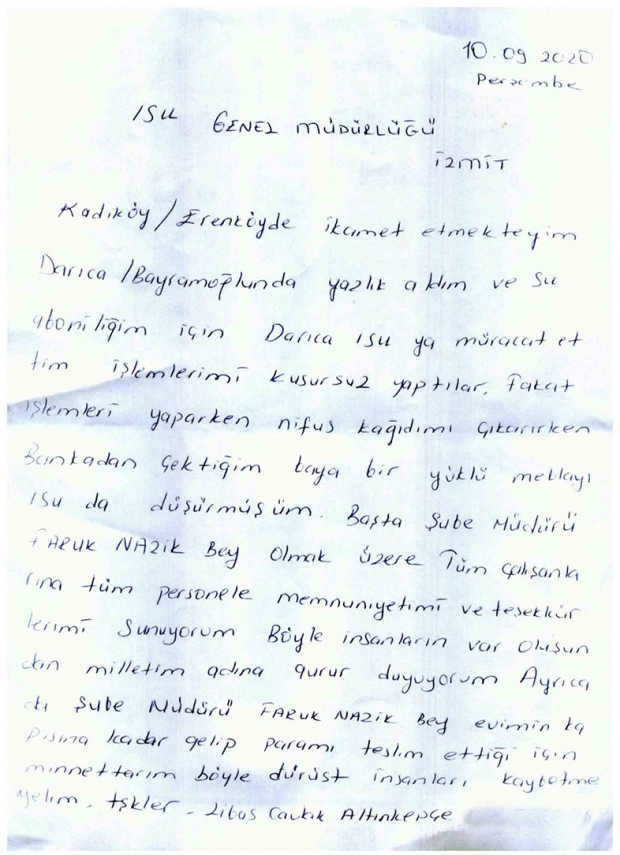 10.09 2020
Perşembe
ISU GENEL MÜDÜRLÜĞÜ
İZMİT
Kadıköy/Erenköyde ikamet etmekteyim
Darıca/Bayramoğlunda yazlık aldım ve su
aboniliğim için Darıca ISU ya müracat et
tim işlemlerimi kusursuz yaptılar. Fakat
işlemleri yaparken nifus kağıdımı çıkarırken
Bankadan çektiğim baya bir yüklü meblayı
ISU da düşürmüşüm. Başta Şube Müdürü
FARUK NAZİK Bey Olmak üzere Tüm çalışanla
rına tüm personele memnuniyetimi ve teşekkür
lerimi sunuyorum Böyle insanların var oluşun
dan milletim adına gurur duyuyorum Ayrıca
da Şube Müdürü FARUK NAZİK Bey evimin ka
pısına kadar gelip paramı teslim ettiği için
minnettarım böyle dürüst insanları kaybetme
yelim. tşkler - Altınkepçe